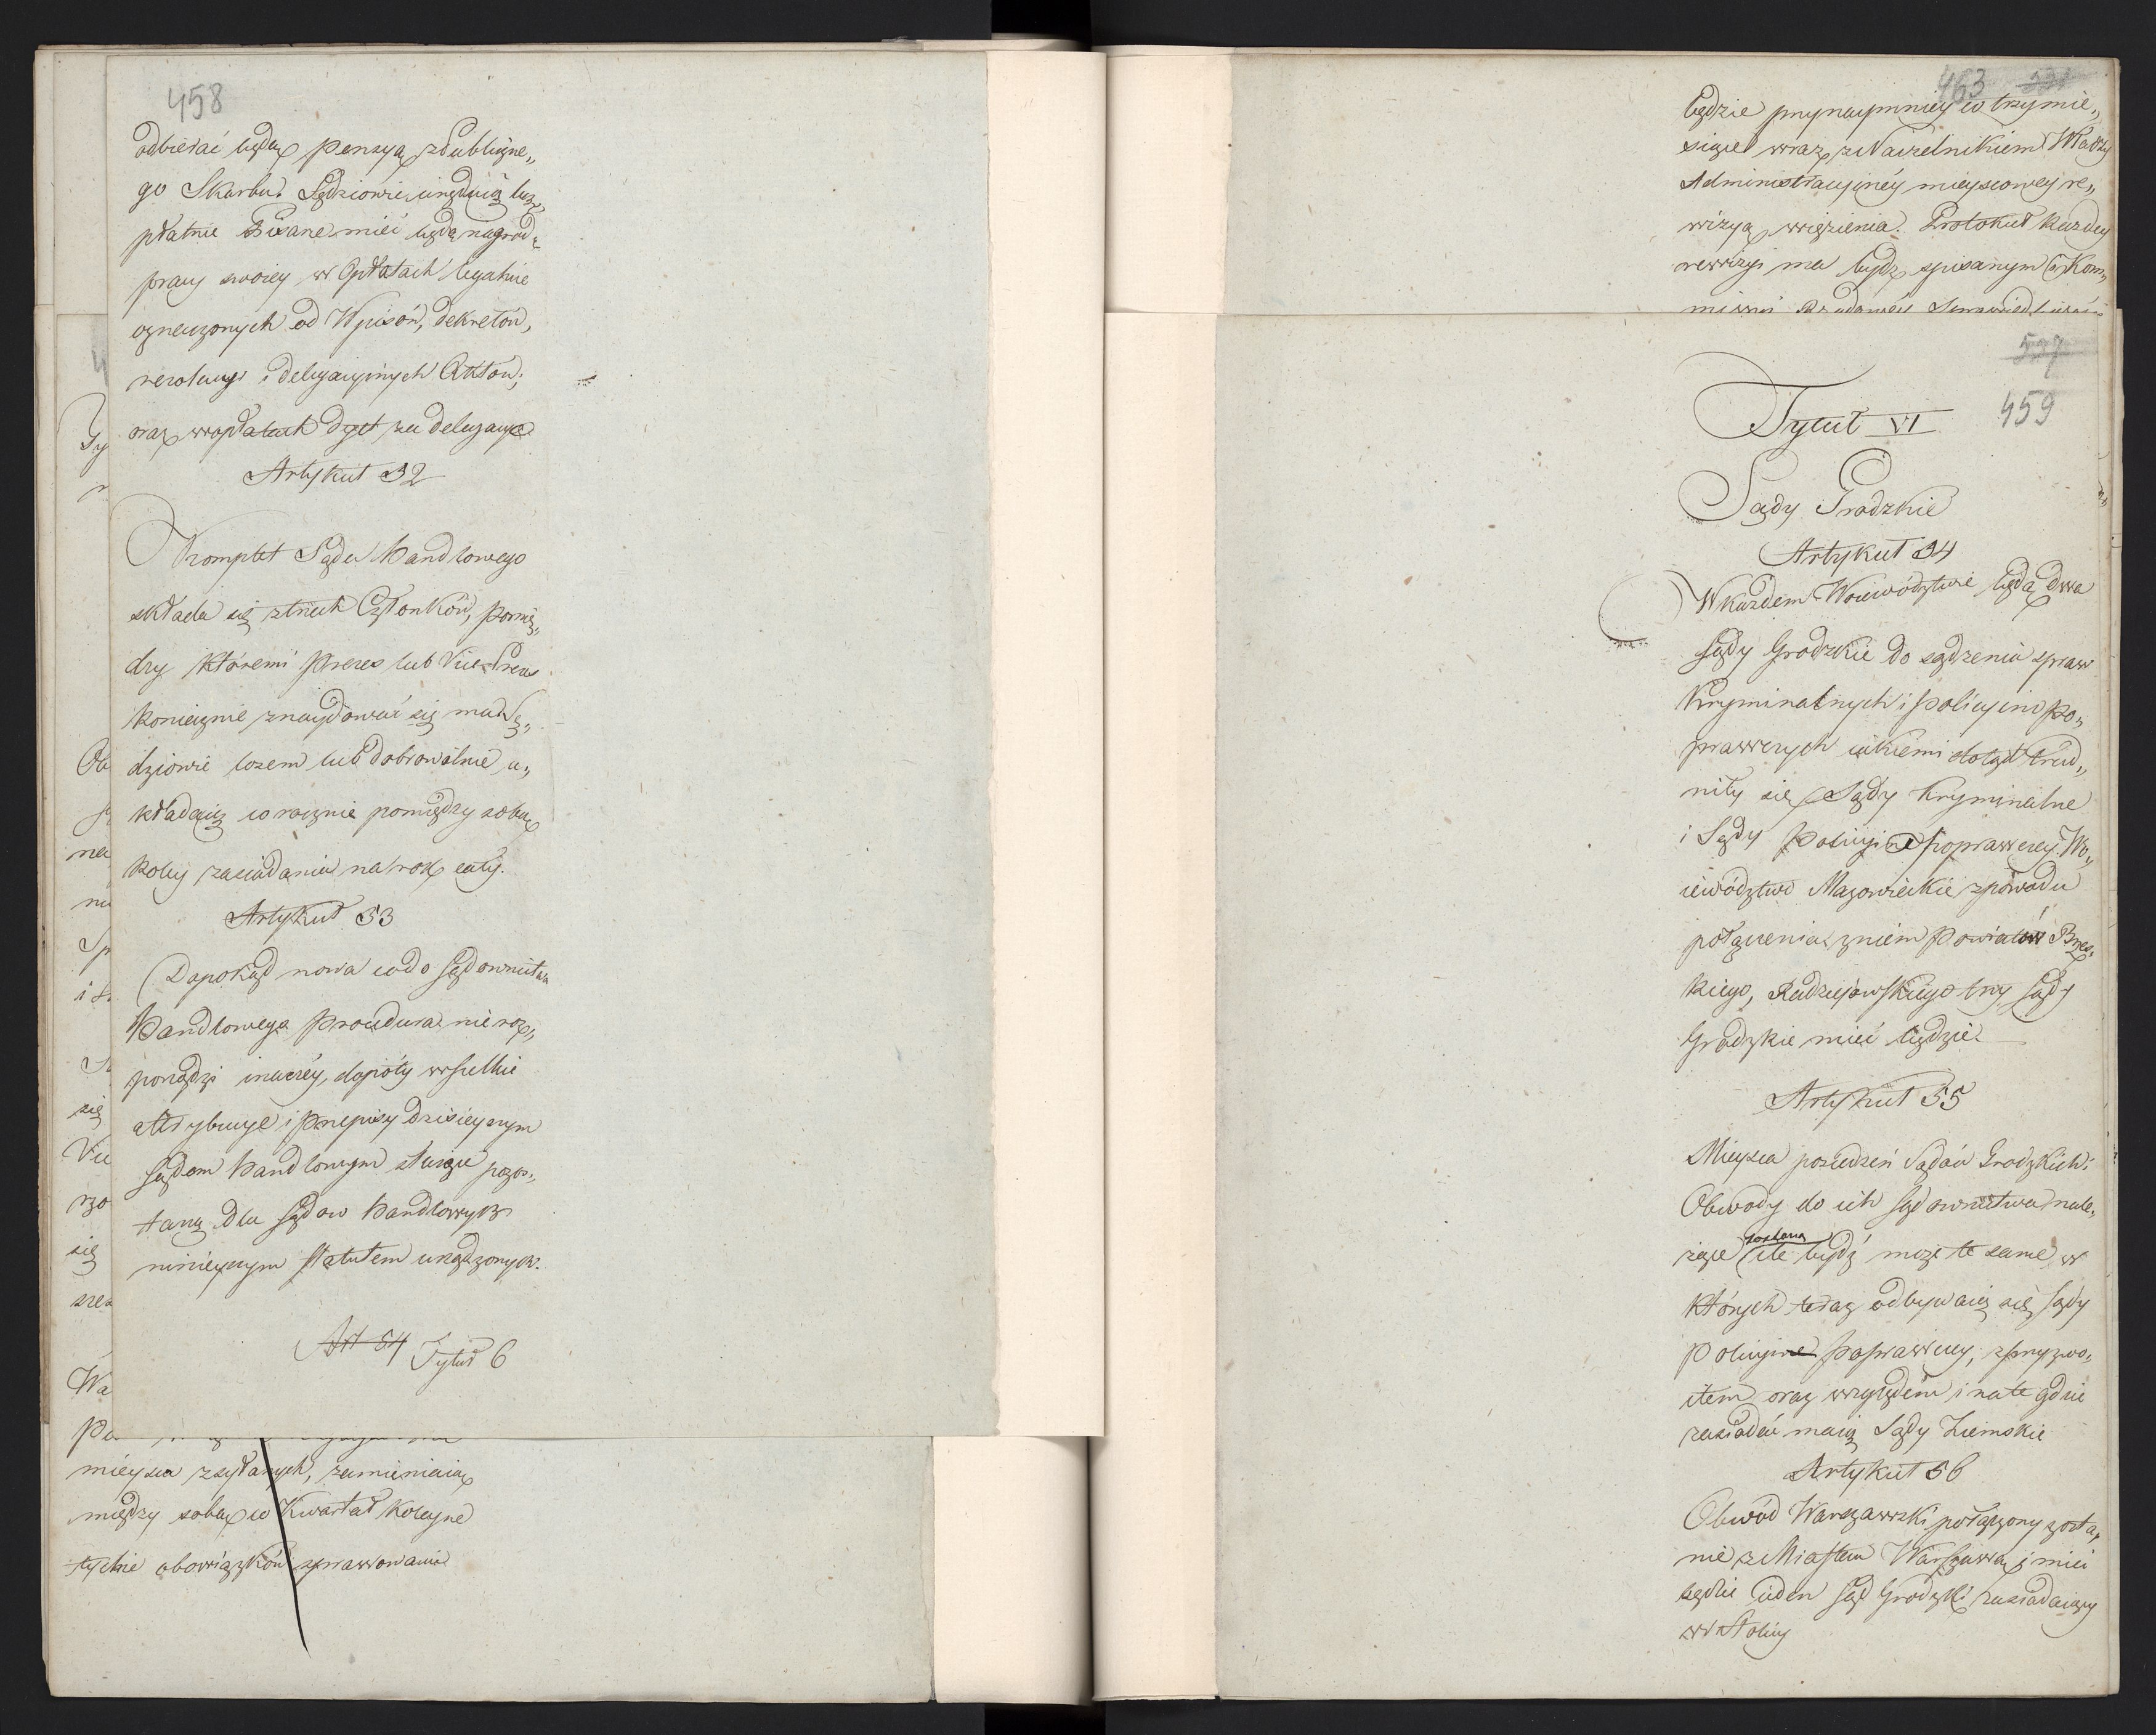 458
odbierać będą pensyą z Publiczne„
go Skarbu. Sędziowie urzędując bez„
płatnie Pisarze mieć będą nagrodę
pracy swoiey w Opłatach legalnie
oznaczonych od Wpisów, dekretów,
rezolucyi i delegacyinych Aktów;
oraz w opłatach dyet za delegacye
Artykuł 32
Komplet Sądu Handlowego
składa się z trzech Członków, pomię„
dzy któremi Prezes lub Vice Prezes
koniecznie znaydować się ma Sę„
dziowie losem lub dobrowolnie u„
kładaią corocznie pomiędzy sobą
koley zasiadania na rok cały.
Artykuł 53
Dopokąd nowa co do sądownictwa
Handlowego Procedura nie roz„
porządzi inaczéy, dopóty wszelkie
attrybucye i przepisy dzisieyszym
sądom handlowym służące pozo„
taną dla sądow handlowych
ninieyszym statutem urządzonych.
Art 54 Tytuł 6
mieysca zsyłanych, zamieniaiąc
między sobą co Kwartał koleyne
tychże obowiązków sprawowanie
Ty
Ob
na
Sp
się
Vic
rzo
się
Wa
463
będzie przynaymniey co trzy mie„
siące wraz z Naczelnikiem Władzy
Administracyinéy mieyscowey re„
wizyą więzienia. Protokuł każdey
rewizyi ma bydź spisanym i Kom„
missyi Rządowéy Sprawiedliwości
537
459
Tytuł VI
Sądy Grodzkie
Artykuł 34
W każdem Woiewództwie będą dwa
sądy Grodzkie do sądzenia spraw
Kryminalnych i policyino po„
prawczych iakiemi dotąd trud„
niły się Sądy Kryminalne
i Sądy Policyi poprawczey. Wo„
iewództwo Mazowieckie z powodu
połączenia z niem Powiatów Brzes„
kiego, Radziejowskiego trzy sądy
Grodzkie mieć będzie.
Artykuł 55
Mieysca posiedzeń Sądów Grodzkich i
Obwody do ich sądownictwa nale„
żące zostaną ile bydź może te same w
których teraz odbywaią się sądy
Policyine poprawczey, z przyzwo„
item oraz względem i na te gdzie
zasiadać maią Sądy Ziemskie
Artykuł 56
Obwód Warszawski połączony zosta„
nie z Miastem Warszawą i mieć
będzie ieden Sąd Grodzki zasiadaiący
w Stolicy